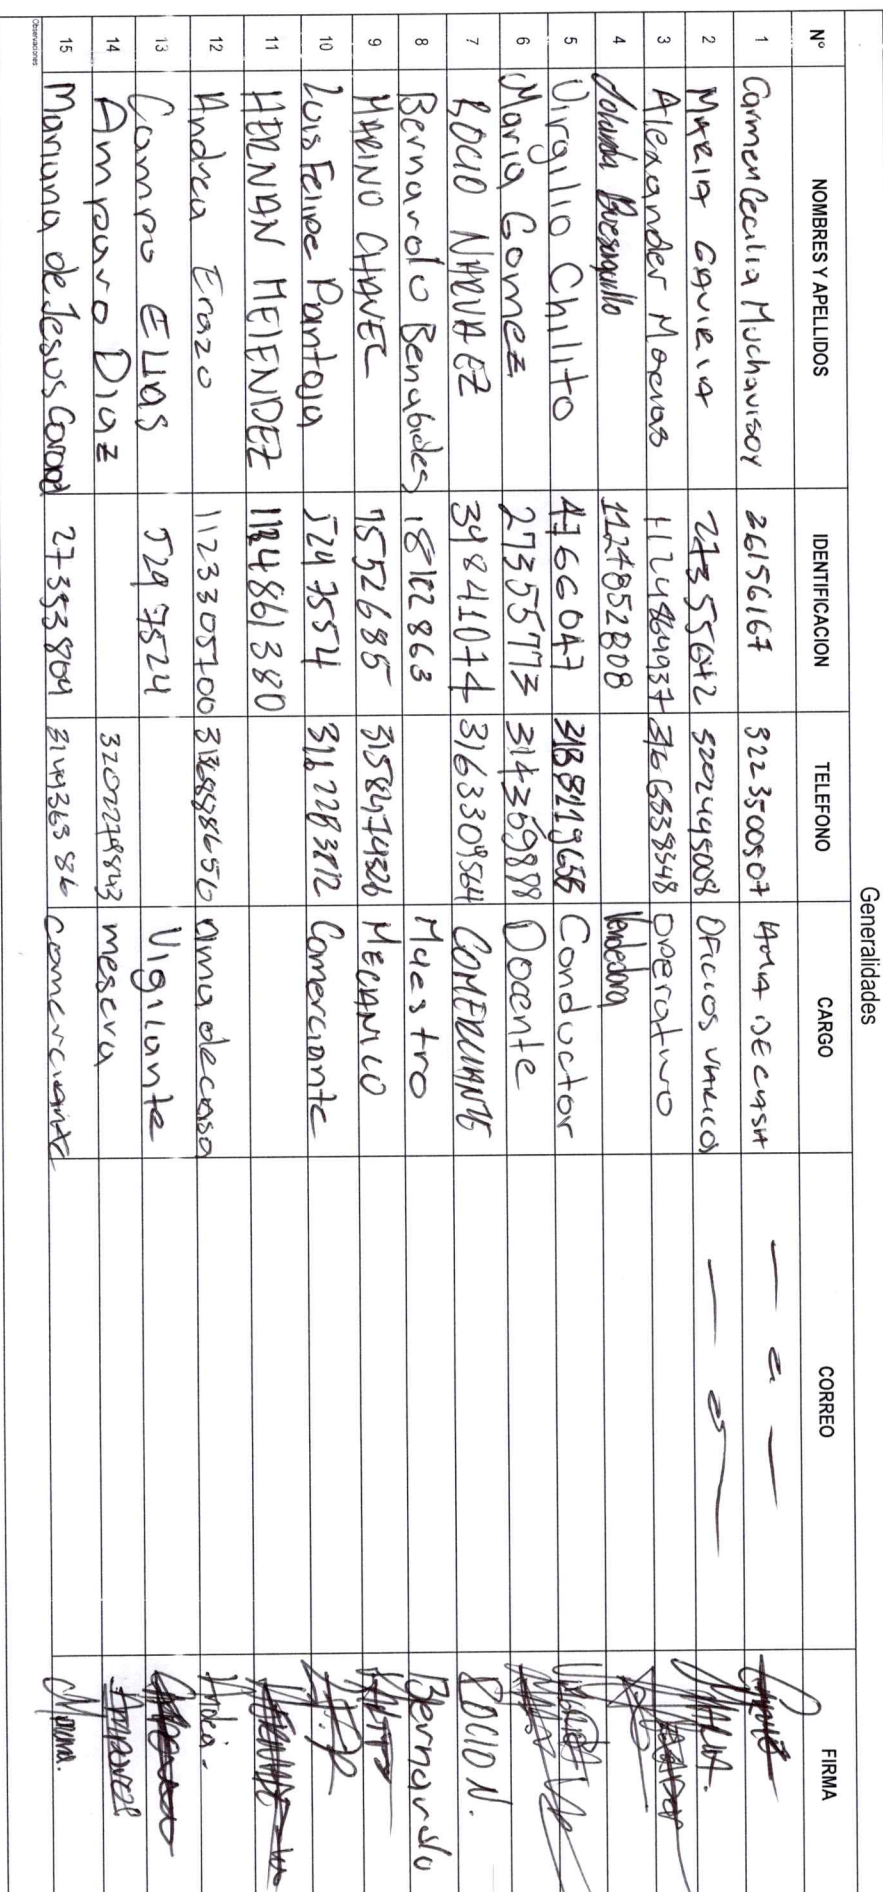 Generalidades
Nº NOMBRES Y APELLIDOS IDENTIFICACION TELEFONO CARGO CORREO FIRMA
1 Carmen Cecilia Muchavisoy 26156167 3223500507 AMA DE CASA
2 MARIA GAVIRIA 27355642 3202449008 OFICIOS VARIOS MARIA.
3 Alexander Maenas 1124864937 3166538348 operativo
4 Yolanda 1124852808 Vendedora
5 Virgilio Chilito 4766047 Conductor
6 Maria Gomez 27355773 3143698 Docente
7 ROCIO NARVAEZ 39841074 3163309564 COMERCIANTE ROCIO N.
8 Bernardo Benabides 18122863 Maestro Bernardo
9 MARINO CHAVEC 7552685 MECANICO
10 Luis Felipe Pantoja 5297554 3112283812 Comerciante
11 HERNAN MELENDEZ 1124861380
12 Andrea Erazo 1123305700 ama de casa
13 Campo Elias 5297524 Vigilante
14 Amparo Diaz 3202279843 mesera
15 Mariana de Jesus 27353804 3149363836 comerciante
Observaciones